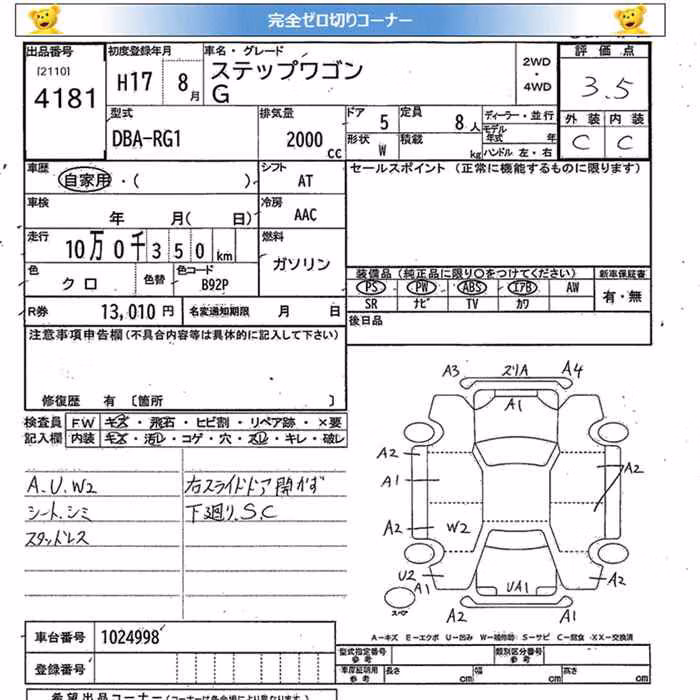 完全ゼロ切りコーナー
出品番号 初度登録年月 車名・グレード 2WD・4WD 評価点
[2110] 4181 H17 8月 ステップワゴン G 3.5
型式 排気量 ドア 5 定員 8人 ディーラー・並行 外装 内装
DBA-RG1 2000cc 形状 W 積載 kg モデル年式 年 ハンドル 左・右 C C
車歴 自家用・( ) シフト AT セールスポイント (正常に機能するものに限ります)
車検 年 月( 日) 冷房 AAC
走行 10万0千350km 燃料 ガソリン
色 クロ 色替 色コード B92P 装備品(純正品に限り○をつけてください) 新車保証書
PS PW ABS エアB AW 有・無
SR ナビ TV カワ
R券 13,010円 名変通知期限 月 日 後日品
注意事項申告欄(不具合内容等は具体的に記入して下さい)
修復歴 有 〔箇所 〕
検査員 FW キズ・飛石・ヒビ割・リペア跡・×要
記入欄 内装 キズ・汚レ・コゲ・穴・スレ・キレ・破レ
A.U.W2 右スライドドア開かず
シート.シミ 下廻り.S.C
スタッドレス
A3 ズリA A4
A1
A2 A2
A1
A2 W2
U2 A1 UA1 A2
スペア A2 A1
A-キズ E-エクボ U-凹み W-補修跡 S-サビ C-腐食 XX-交換済
車台番号 1024998
型式指定番号 参考 類別区分番号 参考
登録番号
車庫証明用 参考 長さ cm 幅 cm 高さ cm
希望出品コーナー